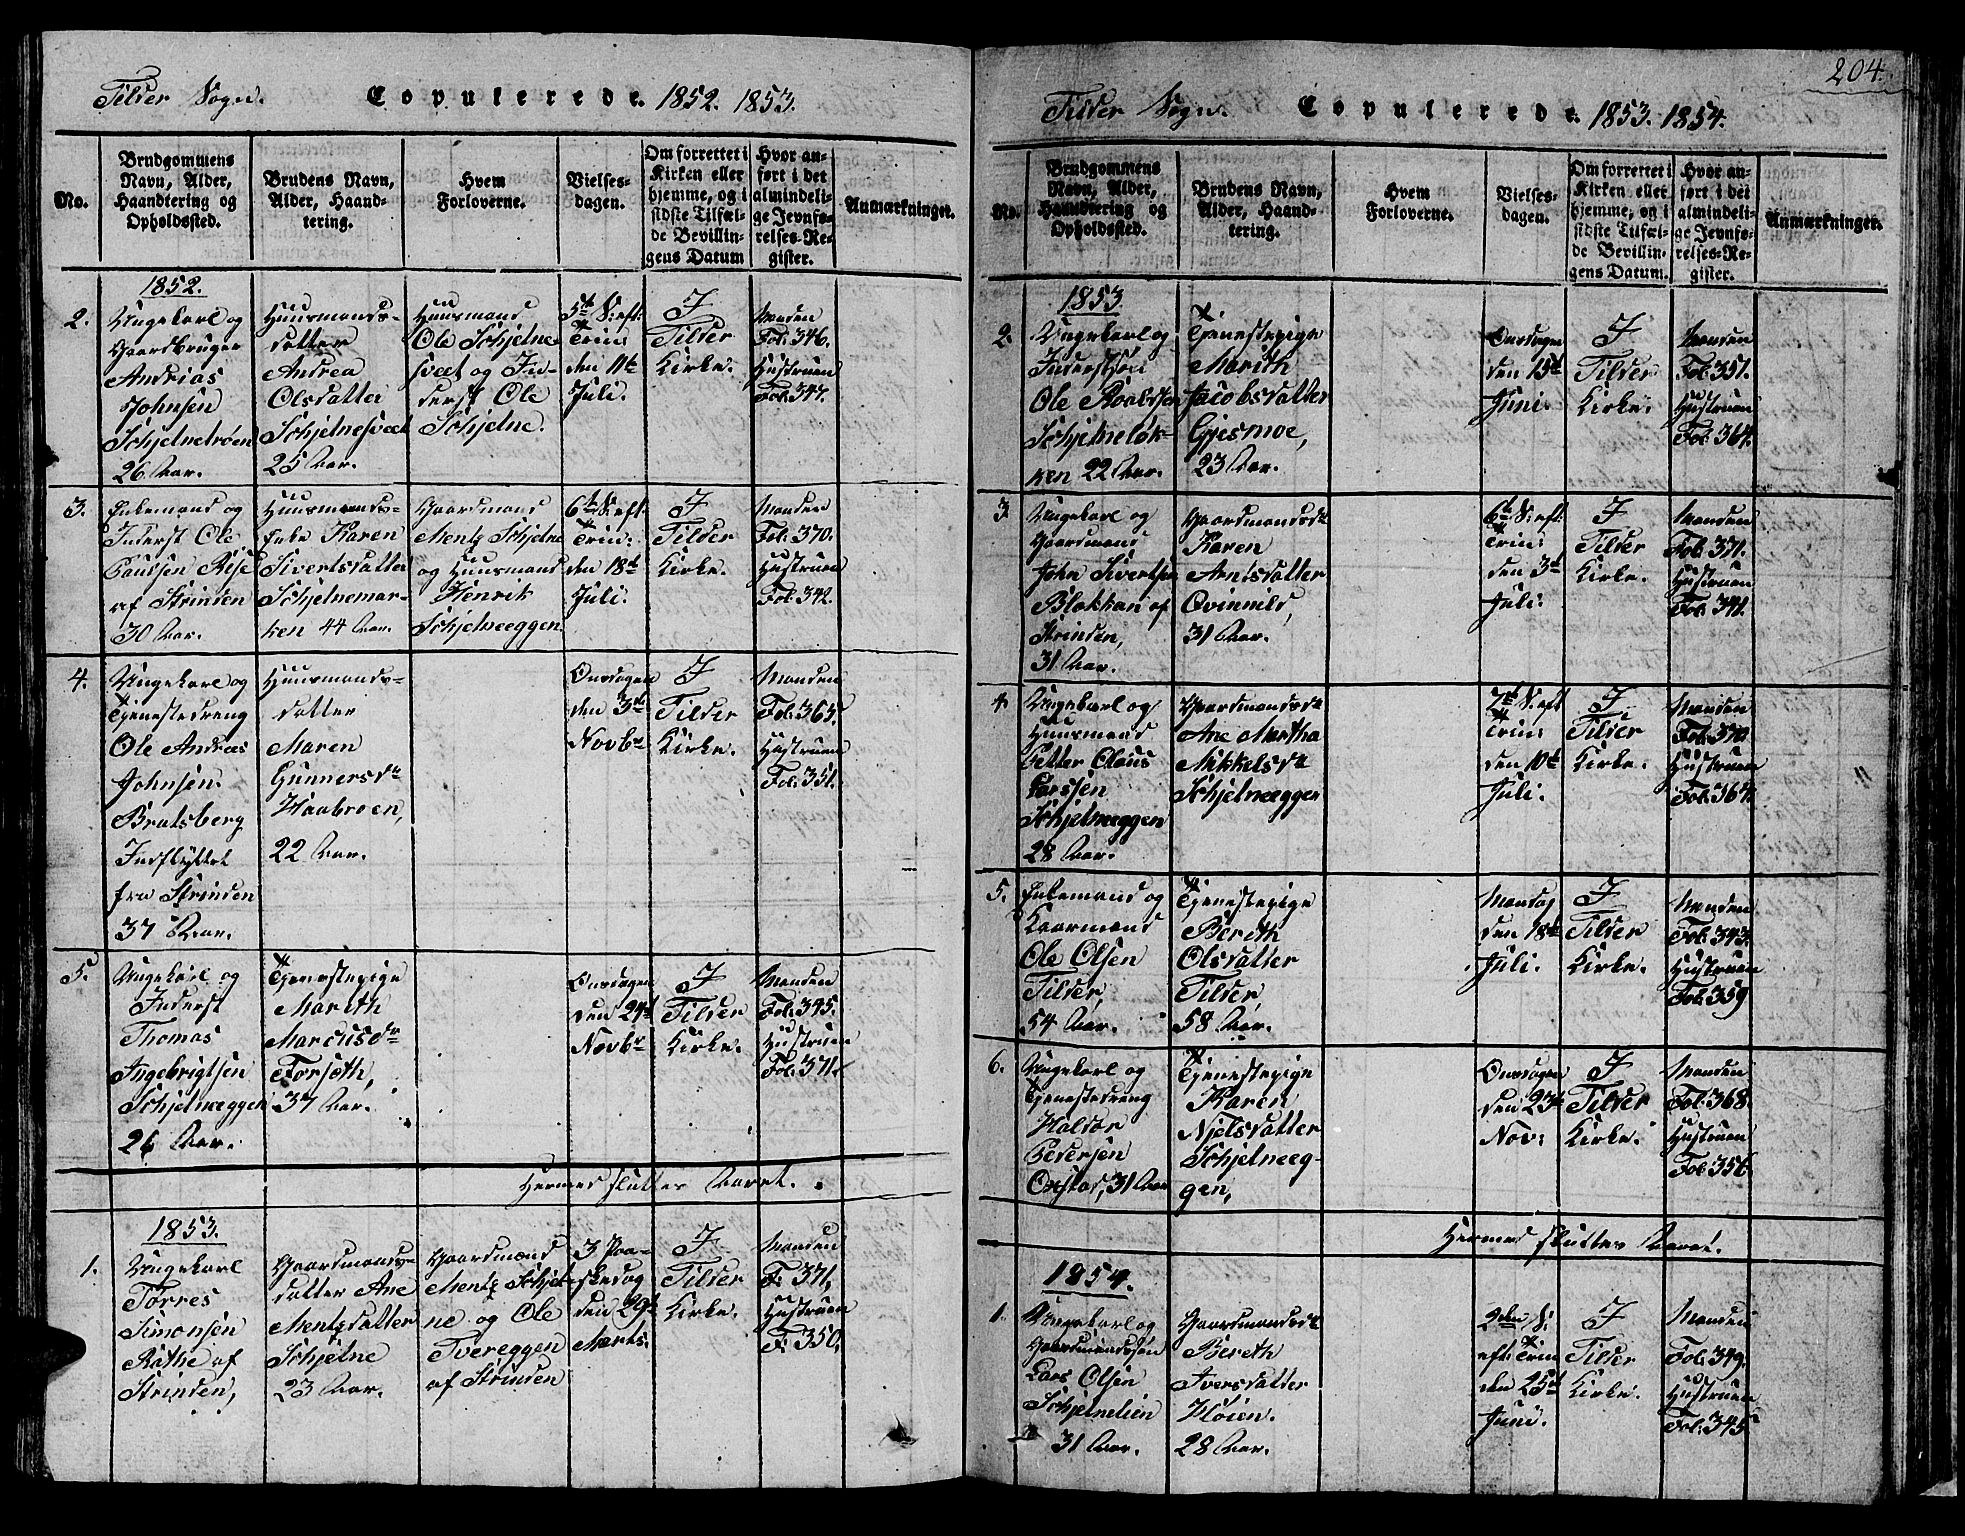 Tilder Sogn. Copulerede. 1852. 1853.
No.
Brudgommens Navn, Alder, Haandtering og Opholdssted.
Brudens Navn, Alder, Haandtering.
Hvem Forloverne.
Vielsesdagen.
Om forrettet i Kirken eller hjemme, og i sidste Tilfælde Bevillingens Datum
Hvor anført i det almindelige Jevnførelses-Register.
Anmærkninger.
1852.
2.
Ungekarl og
Gaardbruger
Andrias
Johnsen
Schjelnetrøen
26 Aar.
Huusmands-
datter
Andrea
Olsdatter
Schjelnesvæt
25 Aar.
Huusmand
Ole Schjelne
svæt og In-
derst Ole
Schjelne.
5te S: eft.
Trin:
den 11te
Juli.
I
Tilder
Kirke.
Manden
Fol. 346.
Hustruen
Fol. 347.
3.
Enkemand og
Inderst Ole
Paulsen Rise
af Strinden
30 Aar.
Huusmands-
enke Karen
Sivertsdatter
Schjelnemar-
ken 44 Aar.
Gaardmand
Mentz Schjelne
og Huusmand
Henrik
Schjelneeggen.
6te S: eft.
Trin:
den 18de
Juli.
I
Tilder
Kirke.
Manden
Fol. 370.
Hustruen
Fol. 342.
4.
Ungekarl og
Tjenestedreng
Ole Andreas
Johnsen
Bratsberg
Indflyttet
fra Strinden
37 Aar.
Huusmands-
datter
Maren
Gunnersdr
Haabroen,
22 Aar.
Onsdagen
den 3de
Novbr
I
Tilder
Kirke.
Manden
Fol. 365.
Hustruen
Fol. 351.
5.
Ungekarl og
Inderst
Thomas
Ingebrigtsen
Schjelneeggen
26 Aar.
Tjenestepige
Marith
Marcusdr
Forseth,
37 Aar.
Onsdagen
den 24de
Novbr
I
Tilder
Kirke.
Manden
Fol. 345.
Hustruen
Fol. 371.
Hermed sluttes Aaret.
1853.
1.
Ungekarl
Torres
Simonsen
Rathe af
Strinden,
Gaardmands-
datter Ane
Mentzdatter
Schjelne
23 Aar.
Gaardmænd
Mentz Schjel-
ne og Ole
Tvereggen
af Strinden
3 Paa-
skedag
den 29de
Marts.
I
Tilder
Kirke.
Manden
F. 371.
Hustruen
F. 350.
204.
Tilder Sogn. Copulerede. 1853. 1854.
No.
Brudgommens Navn, Alder, Haandtering og Opholdssted.
Brudens Navn, Alder, Haandtering.
Hvem Forloverne.
Vielsesdagen.
Om forrettet i Kirken eller hjemme, og i sidste Tilfælde Bevillingens Datum.
Hvor anført i det almindelige Jevnførelses-Register.
Anmærkninger.
1853
2.
Ungekarl og
Inderstsøn
Ole Roaldsen
Schjelneløk-
ken 22 Aar.
Tjenestepige
Marith
Jacobsdatter
Gjesmoe,
23 Aar.
Onsdagen
den 15de
Juni.
I
Tilder
Kirke.
Manden
Fol. 351.
Hustruen
Fol. 364.
3.
Ungekarl og
Gaardmand
John Sivertsen
Blakkan af
Strinden,
31 Aar.
Gaardmandsdt
Karen
Arntsdatter
Qvinnild,
31 Aar.
6te S: eft.
Trin:
den 3de
Juli.
I
Tilder
Kirke.
Manden
Fol. 371.
Hustruen
Fol. 341.
4.
Ungekarl og
Huusmand
Petter Claus
Larssen
Schjelneeggen
28 Aar.
Gaardmandsdt
Ane Martha
Mikkelsdt
Schjelneeggen
7de S: eft
Trin:
den 10de
Juli.
I
Tilder
Kirke.
Manden
Fol. 370.
Hustruen
Fol. 364.
5.
Enkemand og
Kaarmand
Ole Olsen
Tilder,
54 Aar.
Tjenestepige
Bereth
Olsdatter
Tilder,
58 Aar.
Mandag
den 18de
Juli.
I
Tilder
Kirke.
Manden
Fol. 343.
Hustruen
Fol. 359
6.
Ungekarl og
Tjenestedreng
Haldor
Pedersen
Oxstad, 31 Aar
Tjenestepige
Karen
Njelsdatter
Schjelneeg-
gen,
Onsdagen
den 23de
Nov:
I
Tilder
Kirke.
Manden
Fol. 368.
Hustruen
Fol. 356.
Hermed sluttes Aaret.
1854.
1.
Ungekarl og
Gaardmandssøn
Lars Olsen
Schjelnelien
31 Aar.
Gaardmandsdt
Bereth
Iversdatter
Høien.
28 Aar.
2den S:
eft: Trin
den 25de
Juni.
I
Tilder
Kirke.
Manden
Fol. 349.
Hustruen
Fol. 345